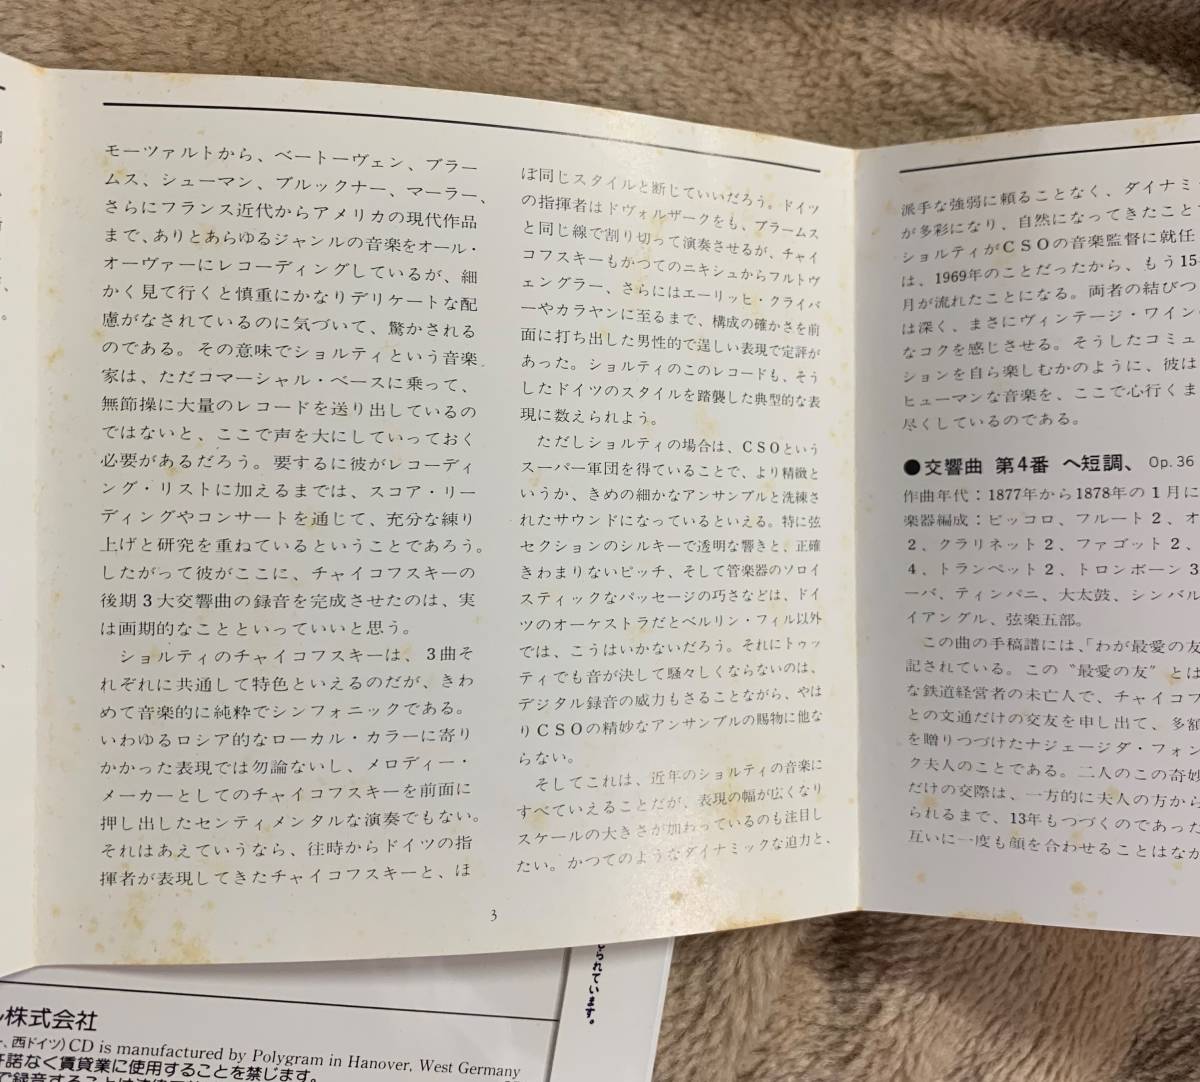 モーツァルトから、ベートーヴェン、ブラー
ムス、シューマン、ブルックナー、マーラー、
さらにフランス近代からアメリカの現代作品
まで、ありとあらゆるジャンルの音楽をオール・
オーヴァーにレコーディングしているが、細
かく見て行くと慎重にかなりデリケートな配
慮がなされているのに気づいて、驚かされる
のである。その意味でショルティという音楽
家は、ただコマーシャル・ベースに乗って、
無節操に大量のレコードを送り出しているの
ではないと、ここで声を大にしていっておく
必要があるだろう。要するに彼がレコーディ
ング・リストに加えるまでは、スコア・リー
ディングやコンサートを通じて、充分な練り
上げと研究を重ねているということであろう。
したがって彼がここに、チャイコフスキーの
後期3大交響曲の録音を完成させたのは、実
は画期的なことといっていいと思う。
ショルティのチャイコフスキーは、3曲そ
れぞれに共通して特色といえるのだが、きわ
めて音楽的に純粋でシンフォニックである。
いわゆるロシア的なローカル・カラーに寄り
かかった表現では勿論ないし、メロディー・
メーカーとしてのチャイコフスキーを前面に
押し出したセンティメンタルな演奏でもない。
それはあえていうなら、往時からドイツの指
揮者が表現してきたチャイコフスキーと、ほ
ぼ同じスタイルと断じていいだろう。ドイツ
の指揮者はドヴォルザークをも、ブラームス
と同じ線で割り切って演奏させるが、チャイ
コフスキーもかつてのニキシュからフルトヴ
ェングラー、さらにはエーリッヒ・クライバ
ーやカラヤンに至るまで、構成の確かさを前
面に打ち出した男性的で逞しい表現で定評が
あった。ショルティのこのレコードも、そう
したドイツのスタイルを踏襲した典型的な表
現に数えられよう。
ただしショルティの場合は、CSOという
スーパー軍団を得ていることで、より精緻と
いうか、きめの細かなアンサンブルと洗練さ
れたサウンドになっているといえる。特に弦
セクションのシルキーで透明な響きと、正確
きわまりないピッチ、そして管楽器のソロイ
スティックなパッセージの巧さなどは、ドイ
ツのオーケストラだとベルリン・フィル以外
では、こうはいかないだろう。それにトゥッ
ティでも音が決して騒々しくならないのは、
デジタル録音の威力もさることながら、やは
りCSOの精妙なアンサンブルの賜物に他な
らない。
そしてこれは、近年のショルティの音楽に
すべていえることだが、表現の幅が広くなり
スケールの大きさが加わっているのも注目し
たい。かつてのようなダイナミックな迫力と、
3
派手な強弱に頼ることなく、ダイナミ
が多彩になり、自然になってきたこと
ショルティがCSOの音楽監督に就任
は、1969年のことだったから、もう15
月が流れたことになる。両者の結びつ
は深く、まさにヴィンテージ・ワイン
なコクを感じさせる。そうしたコミュ
ションを自ら楽しむかのように、彼は
ヒューマンな音楽を、ここで心行くま
尽くしているのである。
●交響曲 第4番 ヘ短調、Op.36
作曲年代：1877年から1878年の1月に
楽器編成：ピッコロ、フルート2、オ
2、クラリネット2、ファゴット2、
4、トランペット2、トロンボーン3
ーバ、ティンパニ、大太鼓、シンバル
イアングル、弦楽五部。
この曲の手稿譜には、「わが最愛の友
記されている。この〝最愛の友〟とは
な鉄道経営者の未亡人で、チャイコフ
との文通だけの交友を申し出て、多額
を贈りつづけたナジェージダ・フォン
ク夫人のことである。二人のこの奇妙
だけの交際は、一方的に夫人の方から
られるまで、13年もつづくのであった
互いに一度も顔を合わせることはなか
られています。
株式会社
、西ドイツ)CD is manufactured by Polygram in Hanover, West Germany
許諾なく賃貸業に使用することを禁じます。